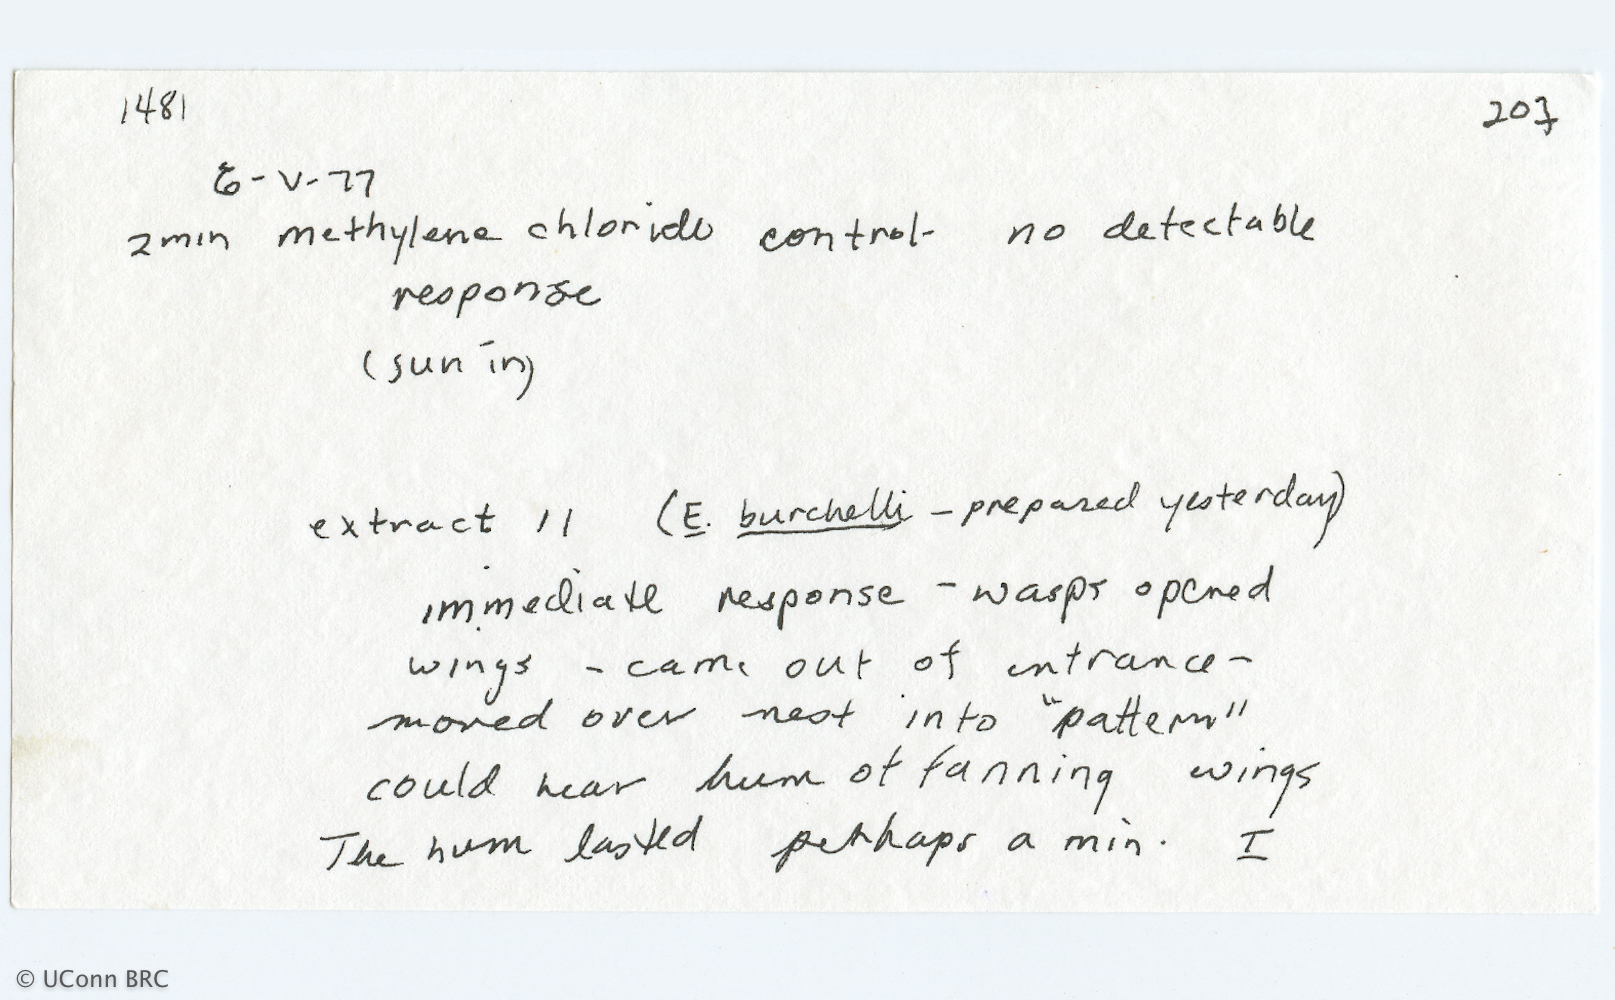 1481
207
6-V-77
2 min methylene chloride control- no detectable
response
(sun in)
extract 11 (E. burchelli - prepared yesterday)
immediate response - wasps opened
wings - came out of entrance -
moved over nest into "pattern"
could hear hum of fanning wings
The hum lasted perhaps a min. I
© UConn BRC